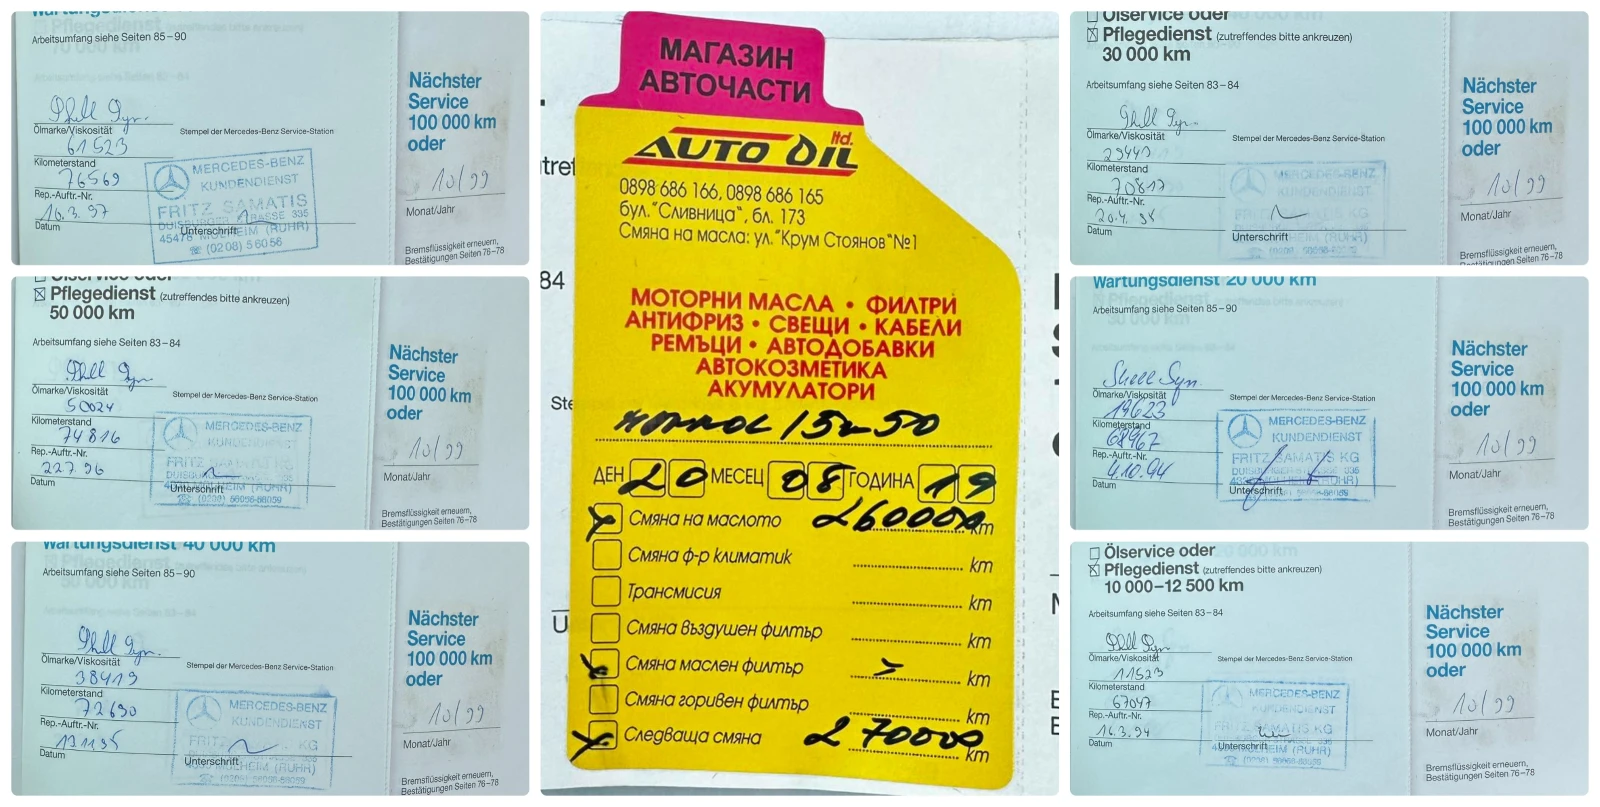 Arbeitsumfang siehe Seiten 85–90
Shell Syn.
Ölmarke/Viskosität
Stempel der Mercedes-Benz Service-Station
61523
Kilometerstand
76569
Rep.-Auftr.-Nr.
16.3.97
Datum
Unterschrift
MERCEDES-BENZ
KUNDENDIENST
FRITZ SAMATIS
DUISBURGER STRASSE 335
45478 MÜLHEIM (RUHR)
☎ (0208) 5 60 56
Nächster
Service
100 000 km
oder
10/99
Monat/Jahr
Bremsflüssigkeit erneuern,
Bestätigungen Seiten 76–78
Ölservice oder
Pflegedienst (zutreffendes bitte ankreuzen)
50 000 km
Arbeitsumfang siehe Seiten 83–84
Shell Syn.
Ölmarke/Viskosität
Stempel der Mercedes-Benz Service-Station
50024
Kilometerstand
74816
Rep.-Auftr.-Nr.
22.7.96
Datum
Unterschrift
MERCEDES-BENZ
KUNDENDIENST
FRITZ SAMATIS KG
Nächster
Service
100 000 km
oder
10/99
Monat/Jahr
Bremsflüssigkeit erneuern,
Bestätigungen Seiten 76–78
Wartungsdienst 40 000 km
Arbeitsumfang siehe Seiten 85–90
Shell Syn.
Ölmarke/Viskosität
Stempel der Mercedes-Benz Service-Station
38419
Kilometerstand
72690
Rep.-Auftr.-Nr.
Datum
Unterschrift
MERCEDES-BENZ
KUNDENDIENST
Nächster
Service
100 000 km
oder
10/99
Monat/Jahr
Bremsflüssigkeit erneuern,
Bestätigungen Seiten 76–78
МАГАЗИН
АВТОЧАСТИ
AUTO OIL ltd.
0898 686 166, 0898 686 165
бул."Сливница", бл. 173
Смяна на масла: ул."Крум Стоянов"№1
МОТОРНИ МАСЛА • ФИЛТРИ
АНТИФРИЗ • СВЕЩИ • КАБЕЛИ
РЕМЪЦИ • АВТОДОБАВКИ
АВТОКОЗМЕТИКА
АКУМУЛАТОРИ
15w50
ДЕН 20 МЕСЕЦ 08 ГОДИНА 19
Смяна на маслото 260000 km
Смяна ф-р климатик km
Трансмисия km
Смяна въздушен филтър km
Смяна маслен филтър km
Смяна горивен филтър km
Следваща смяна 270000 km
Ölservice oder
Pflegedienst (zutreffendes bitte ankreuzen)
30 000 km
Arbeitsumfang siehe Seiten 83–84
Shell Syn.
Ölmarke/Viskosität
Stempel der Mercedes-Benz Service-Station
29441
Kilometerstand
70817
Rep.-Auftr.-Nr.
Datum
Unterschrift
MERCEDES-BENZ
KUNDENDIENST
FRITZ SAMATIS KG
Nächster
Service
100 000 km
oder
10/99
Monat/Jahr
Bremsflüssigkeit erneuern,
Bestätigungen Seiten 76–78
Wartungsdienst 20 000 km
Arbeitsumfang siehe Seiten 85–90
Shell Syn.
Ölmarke/Viskosität
Stempel der Mercedes-Benz Service-Station
19623
Kilometerstand
68967
Rep.-Auftr.-Nr.
4.10.94
Datum
Unterschrift
MERCEDES-BENZ
KUNDENDIENST
FRITZ SAMATIS KG
Nächster
Service
100 000 km
oder
10/99
Monat/Jahr
Bremsflüssigkeit erneuern,
Bestätigungen Seiten 76–78
Ölservice oder
Pflegedienst (zutreffendes bitte ankreuzen)
10 000–12 500 km
Arbeitsumfang siehe Seiten 83–84
Shell Syn.
Ölmarke/Viskosität
Stempel der Mercedes-Benz Service-Station
11523
Kilometerstand
67047
Rep.-Auftr.-Nr.
16.3.94
Datum
Unterschrift
MERCEDES-BENZ
KUNDENDIENST
FRITZ SAMATIS KG
Nächster
Service
100 000 km
oder
10/99
Monat/Jahr
Bremsflüssigkeit erneuern,
Bestätigungen Seiten 76–78